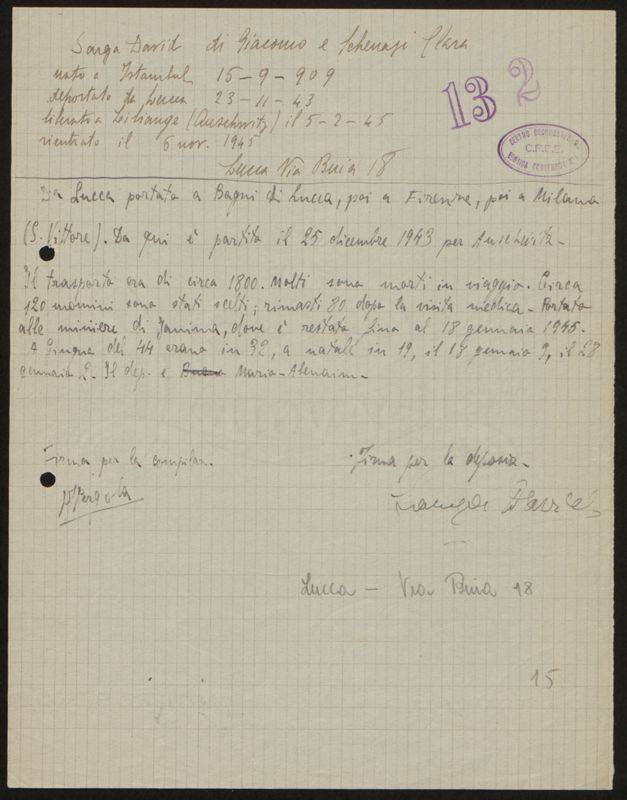 Sarga David di Giacomo e Schenasi Clara
nato a Istambul 15-9-909
deportato da Lucca 23-11-43
liberato a Libiange (Auschwitz) il 5-2-45
rientrato il 6 nov. 1945
Lucca Via Buia 18
13 2
CENTRO
C.P.E.S.
EBRAICA CONTEMPORANEA
Da Lucca portato a Bagni di Lucca, poi a Firenze, poi a Milano
(S. Vittore). Da qui è partito il 25 dicembre 1943 per Auschwitz-
Il trasporto era di circa 1800. Molti sono morti in viaggio. Circa
120 uomini sono stati scelti; rimasti 80 dopo la visita medica - Portato
alle miniere di Janina, dove è restato fino al 18 gennaio 1945.
A Giugno del 44 erano in 32, a natale in 19, il 18 gennaio 9, il 28
gennaio 2. Il dep. e Mario-
Firma per la compilaz.
Firma per la deposiz.
Lucca - Via Buia 18
15